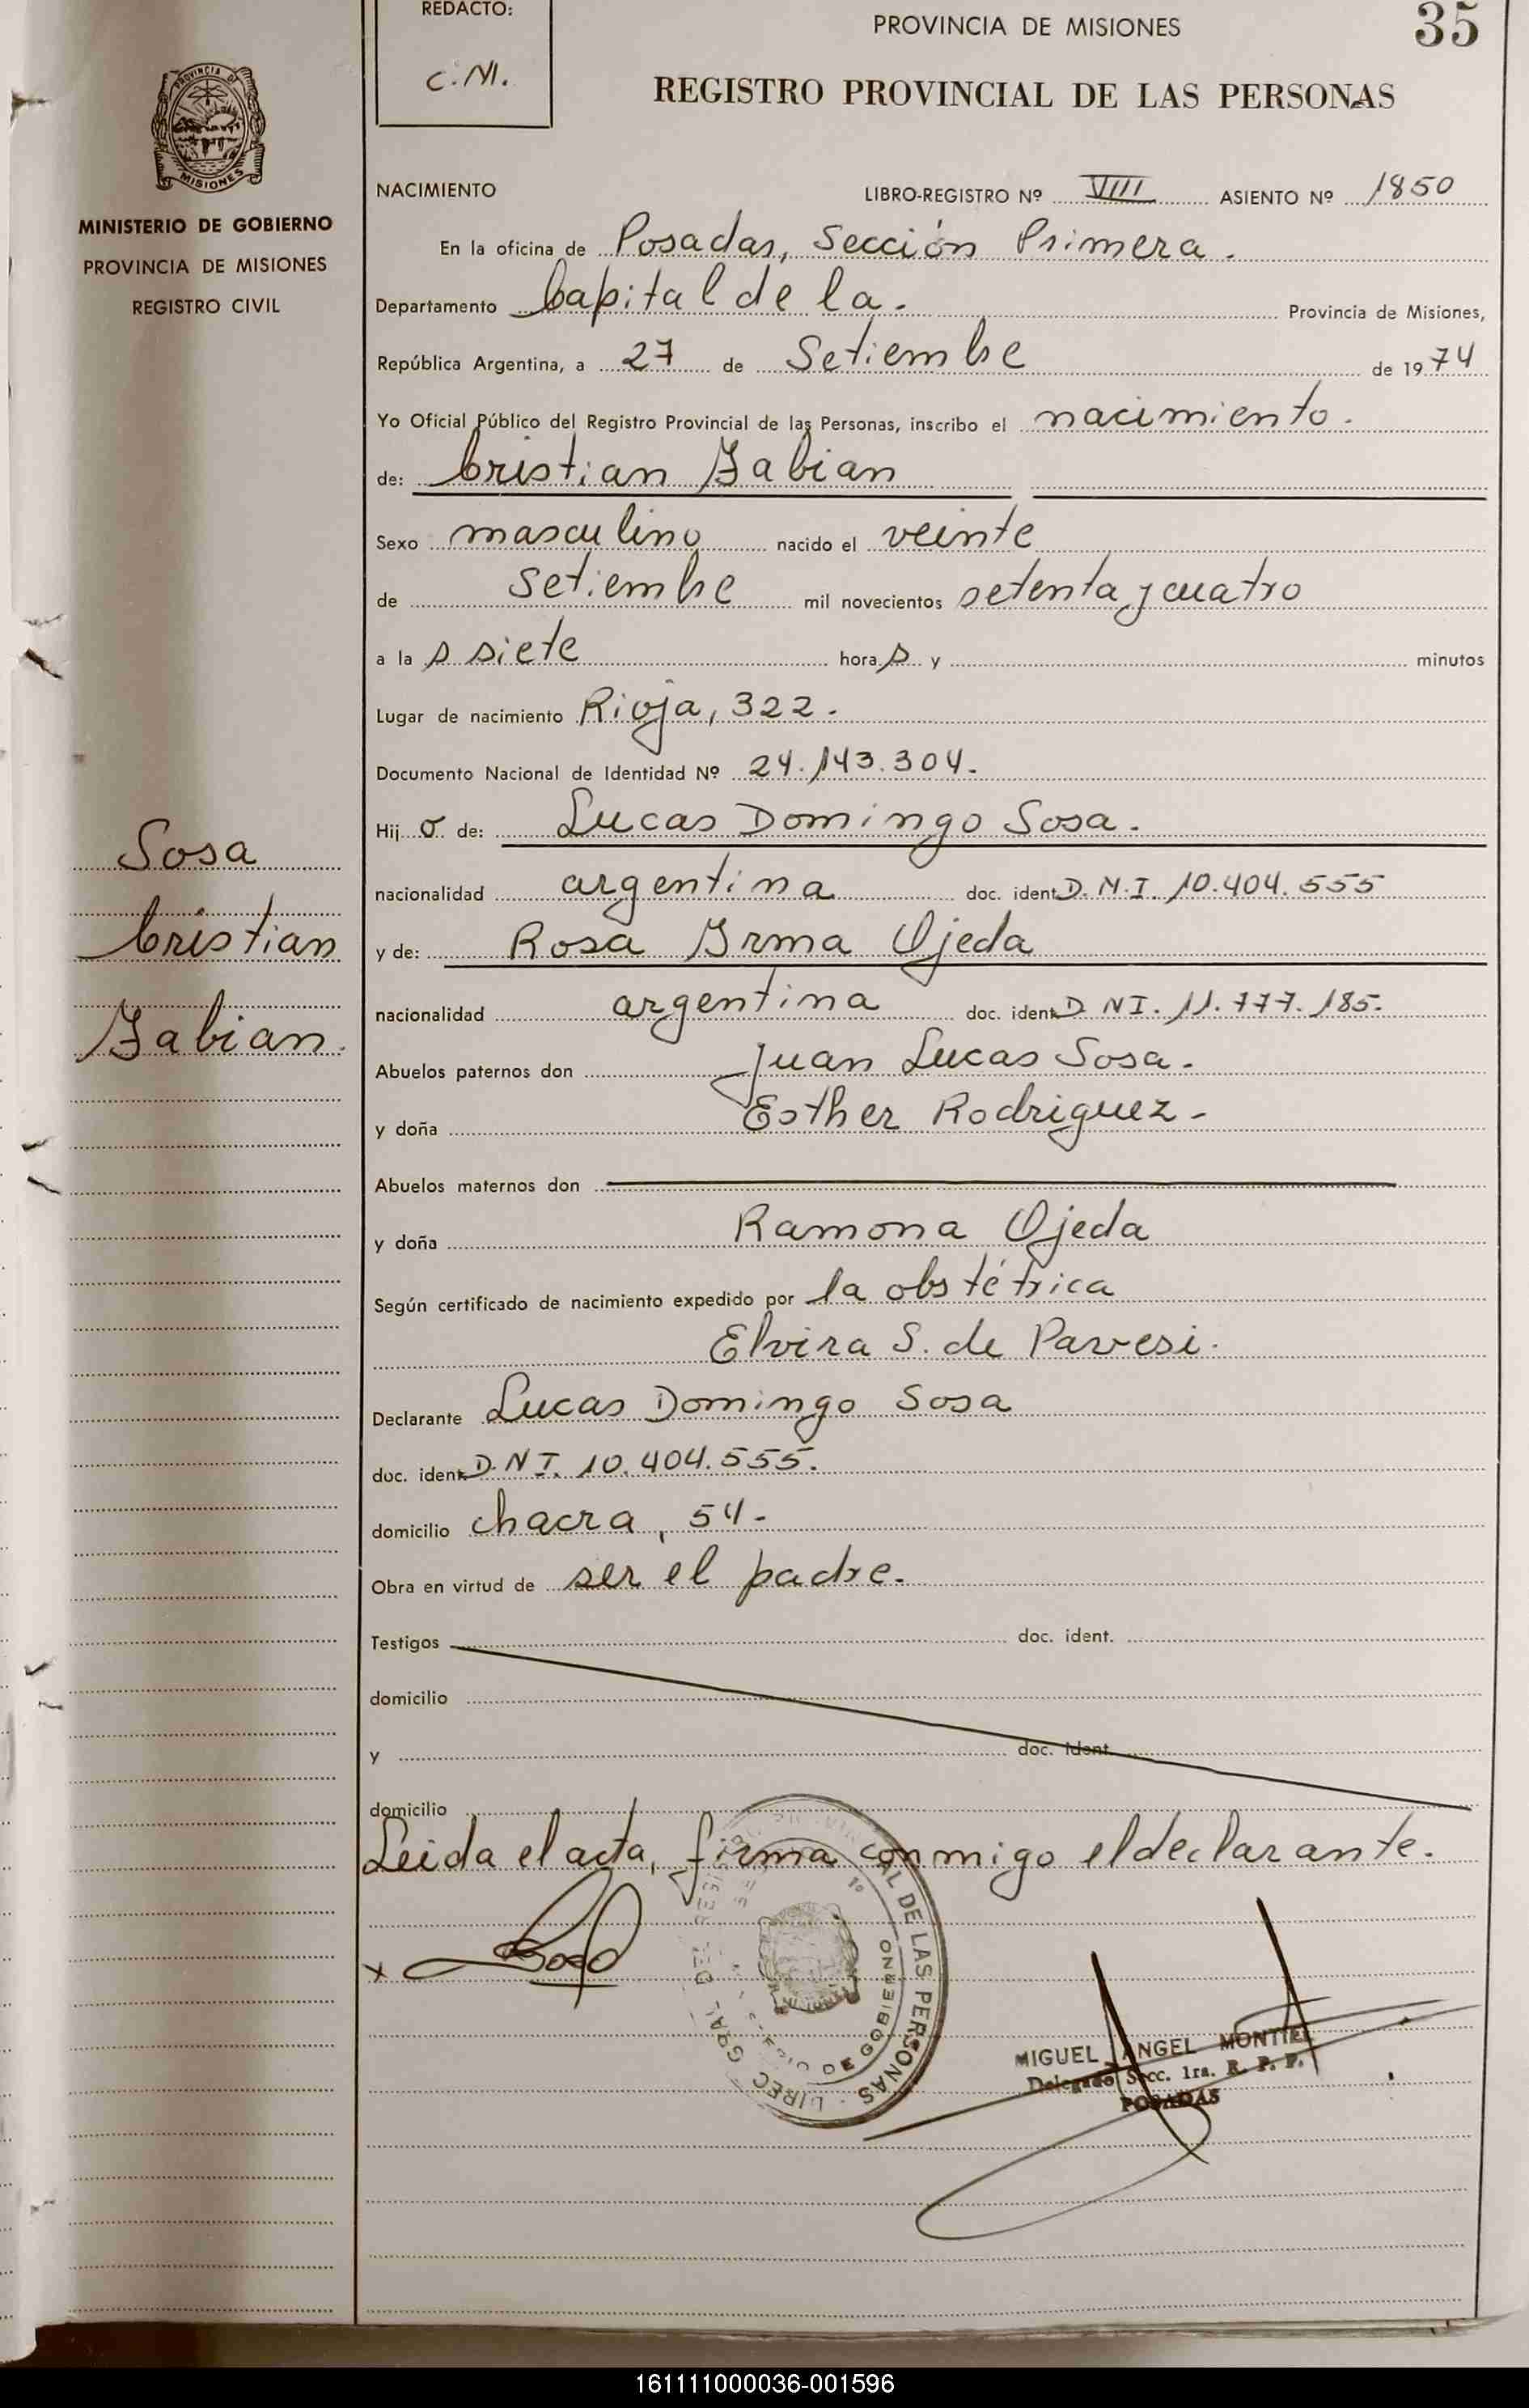 REDACTO:
C. M.
PROVINCIA DE MISIONES
35
REGISTRO PROVINCIAL DE LAS PERSONAS
PROVINCIA D MISIONES
MINISTERIO DE GOBIERNO
PROVINCIA DE MISIONES
REGISTRO CIVIL
NACIMIENTO LIBRO-REGISTRO Nº VIII ASIENTO Nº 1850
En la oficina de Posadas, Sección Primera.
Departamento Capital de la. Provincia de Misiones,
República Argentina, a 27 de Setiembre de 1974
Yo Oficial Público del Registro Provincial de las Personas, inscribo el nacimiento.
de: Cristian Fabian
Sexo masculino nacido el veinte
de Setiembre mil novecientos setenta y cuatro
a las siete horas y minutos
Lugar de nacimiento Rioja, 322.
Documento Nacional de Identidad Nº 24.143.304.
Hijo de: Lucas Domingo Sosa.
nacionalidad argentina doc. ident. D.N.I. 10.404.555
y de: Rosa Irma Ojeda
nacionalidad argentina doc. ident. D.N.I. 11.777.185.
Abuelos paternos don Juan Lucas Sosa.
y doña Esther Rodriguez-
Abuelos maternos don
y doña Ramona Ojeda
Según certificado de nacimiento expedido por la obstétrica
Elvira S. de Pavesi.
Declarante Lucas Domingo Sosa
doc. ident. D.N.I. 10.404.555.
domicilio chacra, 54-
Obra en virtud de ser el padre.
Testigos doc. ident.
domicilio
y doc. ident.
domicilio
Leida el acta, firma conmigo el declarante.
Sosa
Cristian
Fabian.
x Sosa
DIREC GRAL DEL REGISTRO PROVINCIAL DE LAS PERSONAS
DE GOBIERNO
MIGUEL ANGEL MONTIEL
Delegado Secc. 1ra. R. P. P.
POSADAS
161111000036-001596